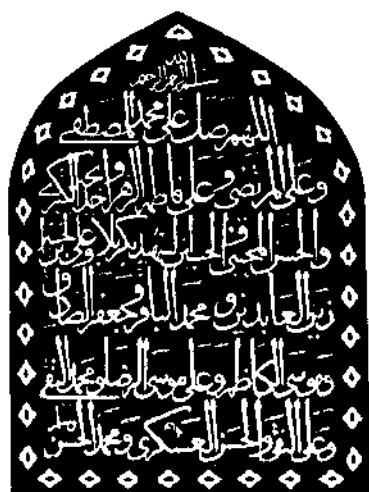 بسم الله الرحمن الرحیم
اللهم صل علی محمد المصطفی
وعلی المرتضی وعلی فاطمة الزهراء وخدیجة الکبری
والحسن المجتبی والحسین الشهید بکربلا وعلی بن الحسین
زین العابدین ومحمد الباقر وجعفر الصادق
وموسی الکاظم وعلی موسی الرضا ومحمد التقی
وعلی النقی والحسن العسکری ومحمد الحسن